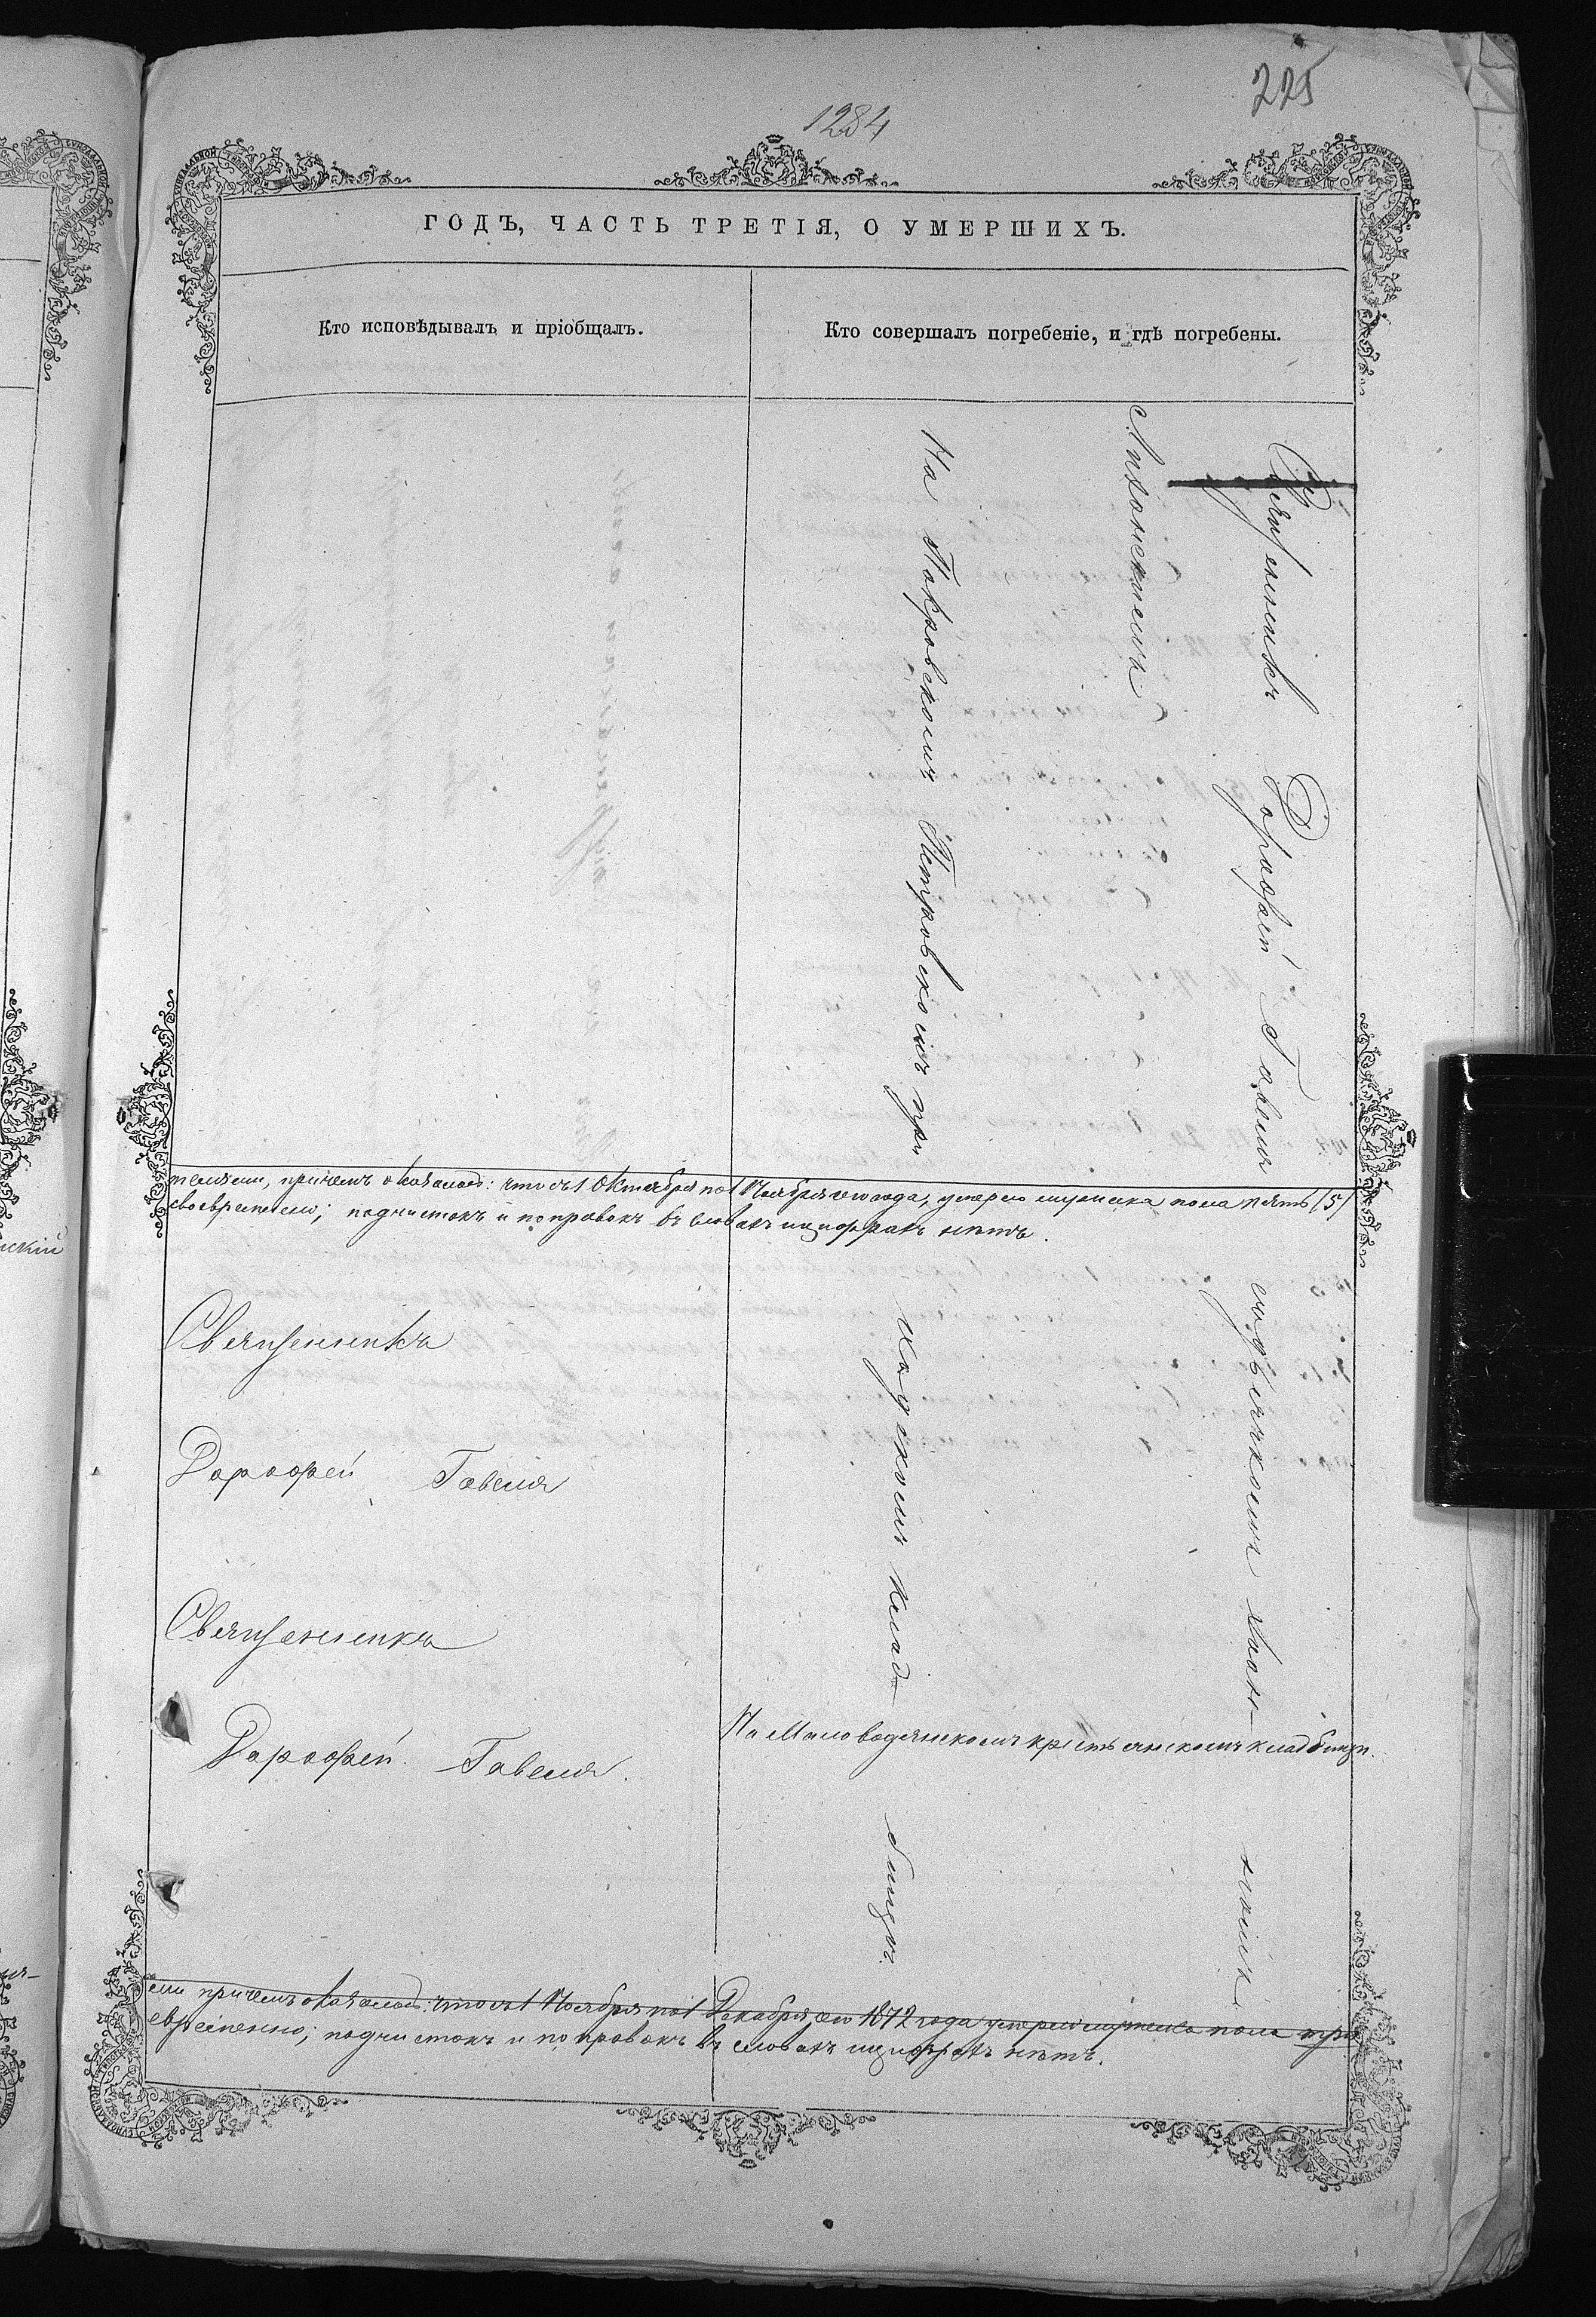 225
1284
ГОДЪ, ЧАСТЬ ТРЕТІЯ, О УМЕРШИХЪ.
Кто исповѣдывалъ и пріобщалъ.
Кто совершалъ погребеніе, и гдѣ погребены.
Священникъ Дорофей Гавеля
съ дьячкомъ
На Покровскомъ Петровскомъ при
причемъ оказалось: что съ 1 Октября по 1 Ноября сего года, умерло мужеска пола пять /5/
своевременно; подчистокъ и поправокъ въ словахъ и цифрахъ нѣтъ.
Священникъ
Дорофей Гавеля
Священникъ
Дорофей Гавеля.
ходскомъ клад
бищѣ.
На Маловодянскомъ крестьянскомъ кладбищѣ.
ели причемъ оказалось: что съ 1 Ноября по 1 Декабря сего 1872 года умерло мужеска пола три
евременно; подчистокъ и поправокъ въ словахъ и цифрахъ нѣтъ.
нскій